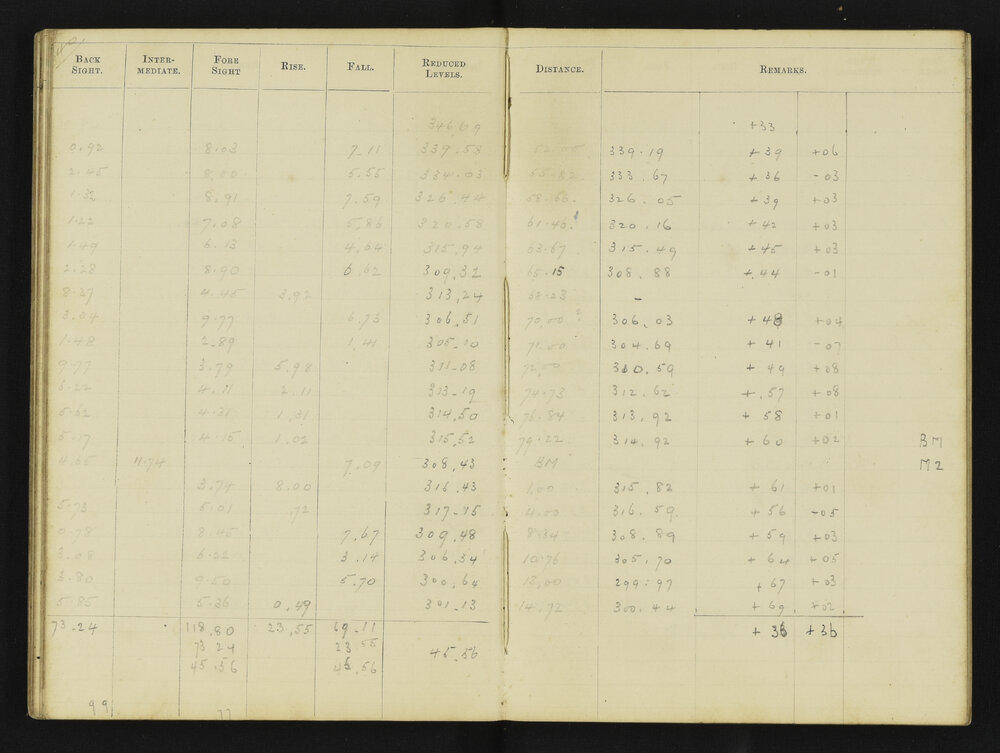 BACK SIGHT. INTER-MEDIATE. FORE SIGHT RISE. FALL. REDUCED LEVELS. DISTANCE. REMARKS.
346.69 +33
0.92 8.03 7.11 339.58 339.19 +39 +06
2.45 8.00 5.55 334.03 55.82 333.67 +36 -03
1.32 8.91 7.59 326.44 58.66 326.05 +39 +03
1.22 7.08 5.86 320.58 61.46 320.16 +42 +03
1.49 6.13 4.64 315.94 63.67 315.49 +45 +03
2.28 8.90 6.62 309.32 65.15 308.88 +.44 -01
8.37 4.45 3.92 313.24 68.23 -
3.04 9.77 6.73 306.51 70.00 306.03 +48 +04
1.48 2.89 1.41 305.10 71.00 304.69 +41 -07
9.77 3.79 5.98 311.08 72.00 310.59 +49 +08
6.22 4.11 2.11 313.19 74.73 312.62 +.57 +08
5.62 4.31 1.31 314.50 76.84 313.92 +58 +01
5.17 4.15 1.02 315.52 79.22 314.92 +60 +02 BM
4.65 11.74 7.09 308.43 BM M2
3.74 8.00 316.43 1.00 315.82 +61 +01
5.73 5.01 .72 317.15 4.00 316.59 +56 -05
0.78 8.45 7.67 309.48 8.34 308.89 +59 +03
3.08 6.22 3.14 306.34 10.76 305.70 +64 +05
3.80 9.50 5.70 300.64 13.00 299.97 +67 +03
5.85 5.36 0.49 301.13 14.72 300.44 +69 +02
73.24 118.80 23.55 69.11 +36 +36
73 24 23 55 45.56
45.56 45.56
99 77